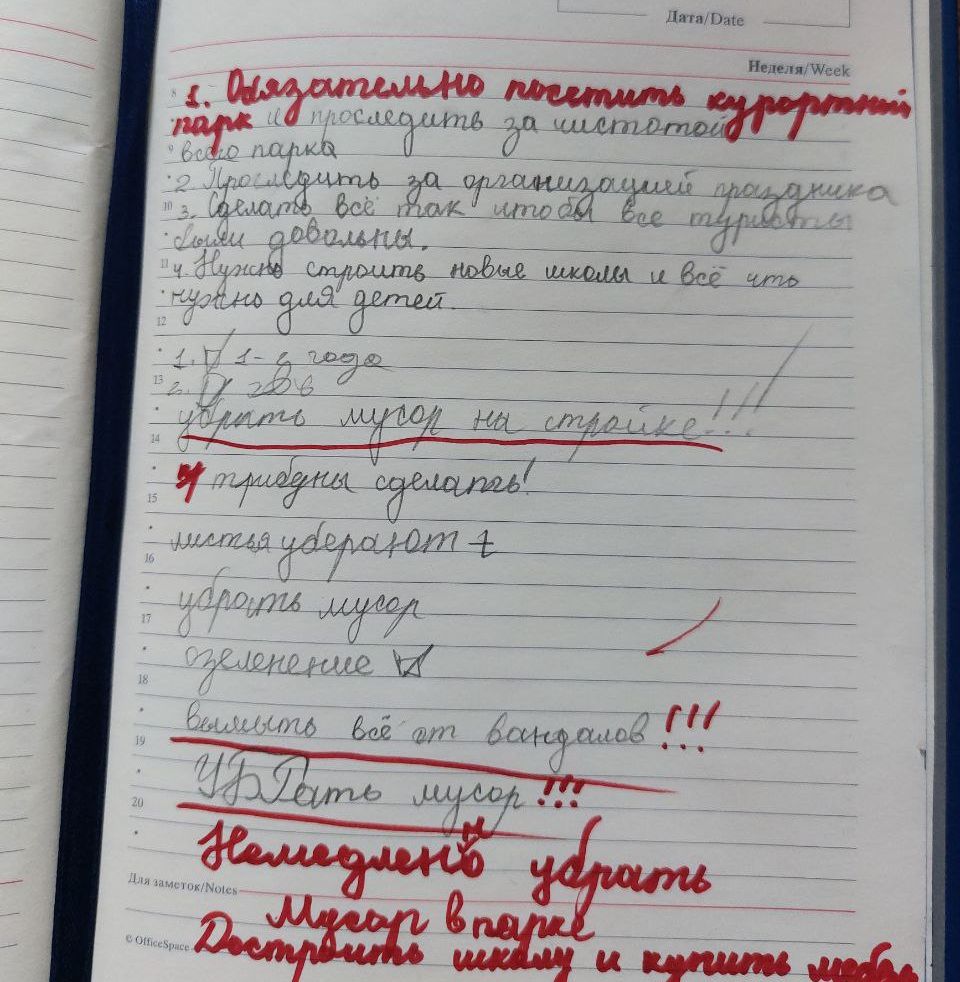 Дата/Date
Неделя/Week
8 1. Обязательно посетить курортный
парк и проследить за чистотой
9 всего парка
2. Проследить за организацией праздника
10 3. Сделать всё так чтобы все туристы
были довольны.
11 4. Нужно строить новые школы и всё что
нужно для детей.
12
1. 1-2 года
13 2.
убрать мусор на стройке!!!
14
трибуны сделать!
15
листья уберают +
16
убрать мусор
17
озеленение
18
вымыть всё от вандалов!!!
19
УБРать мусор!!!
20
Немедленно убрать
Для заметок/Notes
Мусор в парке
© OfficeSpace
Достроить школу и купить мебель